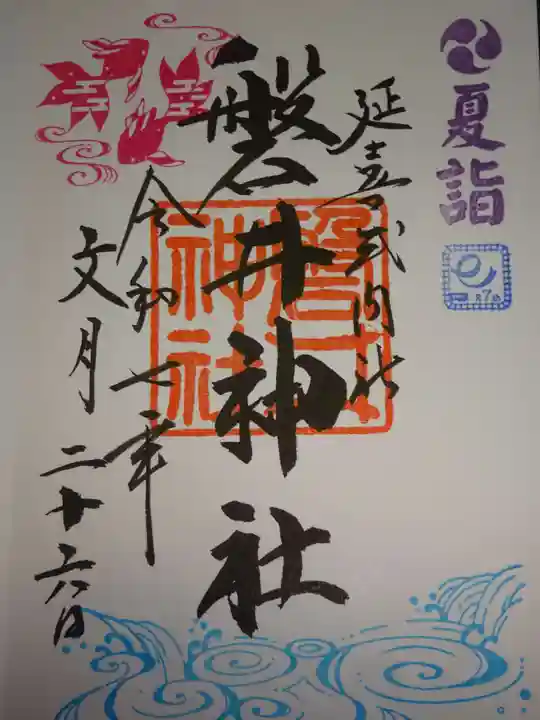 夏詣
延喜式内社
磐井神社
磐井
神社
令和七年
文月二十六日